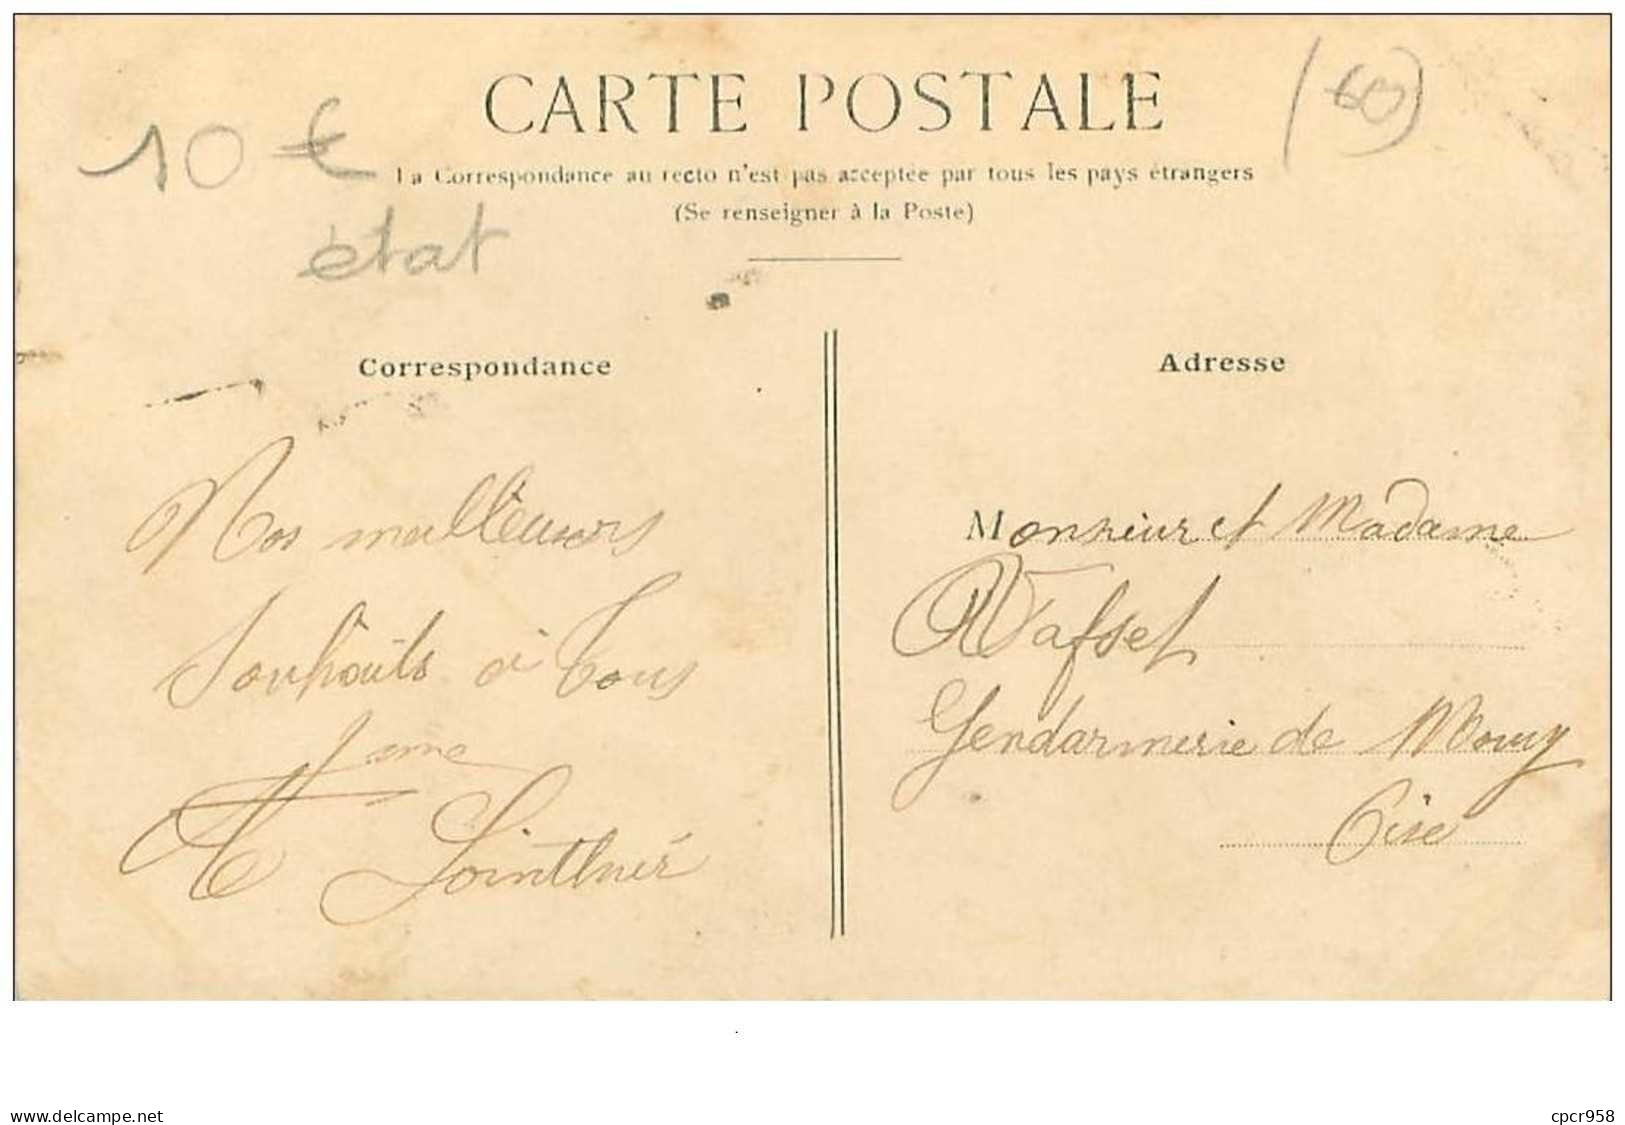 CARTE POSTALE
(60)
10 €
La Correspondance au recto n'est pas acceptée par tous les pays étrangers
(Se renseigner à la Poste)
état
Correspondance
Nos meilleurs
Souhaits à tous
Adresse
Monsieur et Madame
Gendarmerie de Mouy
Oise
www.delcampe.net
cpcr958